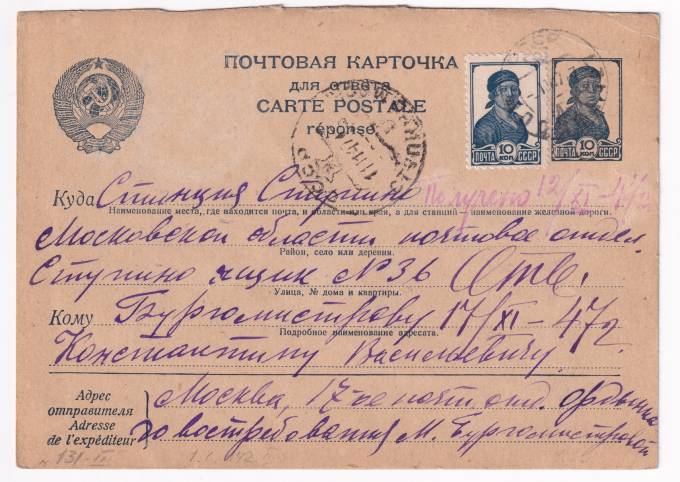 ПОЧТОВАЯ КАРТОЧКА
для ответа
CARTE POSTALE
réponse
10 КОП
ПОЧТА СССР
10 КОП
ПОЧТА СССР
Куда Станция Ступино Получено 12/XI-47г.
Наименование места, где находится почта, и области или края, а для станций—наименование железной дороги.
Московской области почтовое отдел.
Район, село или деревня.
Ступино ящик № 36 Отв.
Улица, № дома и квартиры.
Кому Бургомистрову 17/XI-47г.
Подробное наименование адресата.
Константину Васильевичу
Адрес отправителя
Adresse de l'expéditeur
Москва, 17-ое почт. отд. Ордынка
до востребования М. Бургомистровой
131-II